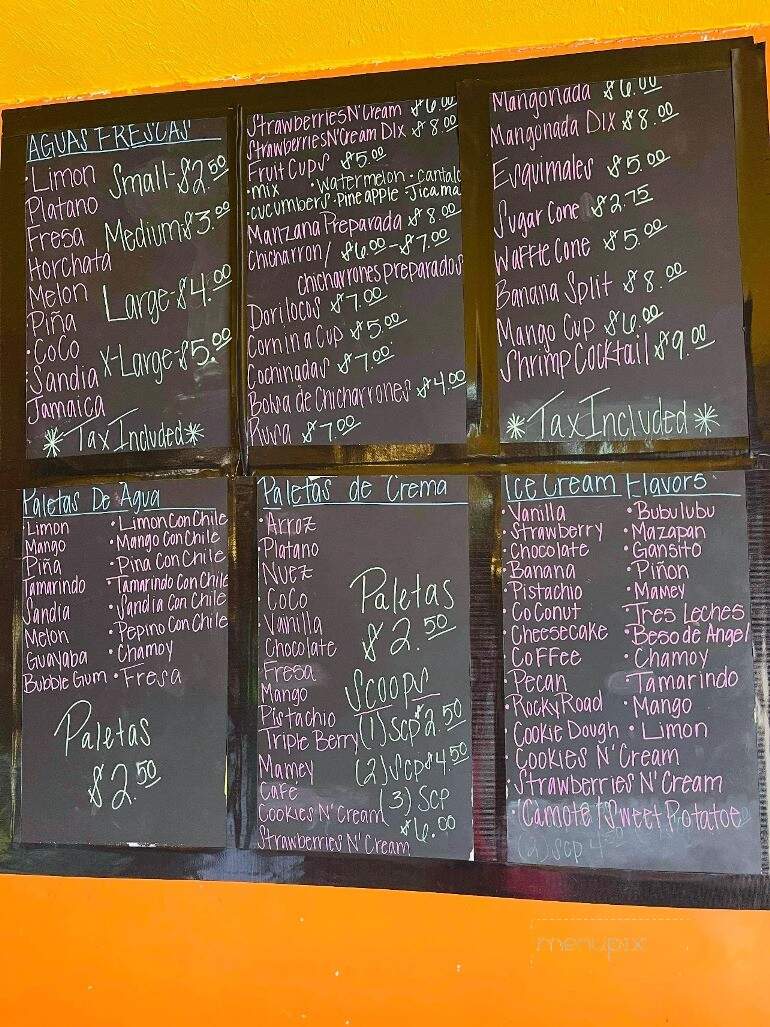 AGUAS FRESCAS
• Limon
Platano
Fresa
Horchata
Melon
Piña
• CoCo
• Sandia
Jamaica
Small-$2.50
Medium $3.00
Large-$4.00
X-Large-$5.00
*Tax Included*
StrawberriesN'Cream $6.00
StrawberriesN'Cream Dlx $8.00
Fruit Cups $5.00
•mix •Watermelon-cantalo
•cucumbers •Pineapple -Jicama
Manzana Preparada $8.00
Chicharron/ $6.00-$7.00
chicharrones preparados
Dorilocos $7.00
Corn in a Cup $5.00
Cochinadas $7.00
Bolsa de Chicharrones $4.00
Rusa $7.00
Mangonada $6.00
Mangonada Dlx $8.00
Esquimales $5.00
Sugar Cone $2.75
Waffle Cone $5.00
Banana Split $8.00
Mango Cup $6.00
Shrimp Cocktail $9.00
*Tax Included*
Paletas De Agua
Limon
Mango
Piña
Tamarindo
Sandia
Melon
Guayaba
Bubble Gum
• Limon Con Chile
• Mango Con Chile
• Pina Con Chile
Tamarindo Con Chile
• Sandia Con Chile
• Pepino Con Chile
• Chamoy
• Fresa
Paletas
$2.50
Paletas de Crema
• Arroz
Platano
Nuez
• CoCo
Vanilla
Chocolate
Fresa
Mango
Pistachio
Triple Berry
Mamey
Café
Cookies N' Cream
Strawberries N' Cream
Paletas
$2.50
Scoops
(1) Scp $2.50
(2) Scp $4.50
(3) Scp
$6.00
Ice Cream Flavors
• Vanilla
• Strawberry
• Chocolate
• Banana
• Pistachio
• CoConut
• Cheesecake
• Coffee
• Pecan
• Rocky Road
• Cookie Dough
• Cookies N' Cream
• Strawberries N' Cream
• Camote/Sweet Potatoe
• Bubulubu
• Mazapan
• Gansito
• Piñon
• Mamey
Tres Leches
• Beso de Angel
• Chamoy
Tamarindo
• Mango
• Limon
menupix